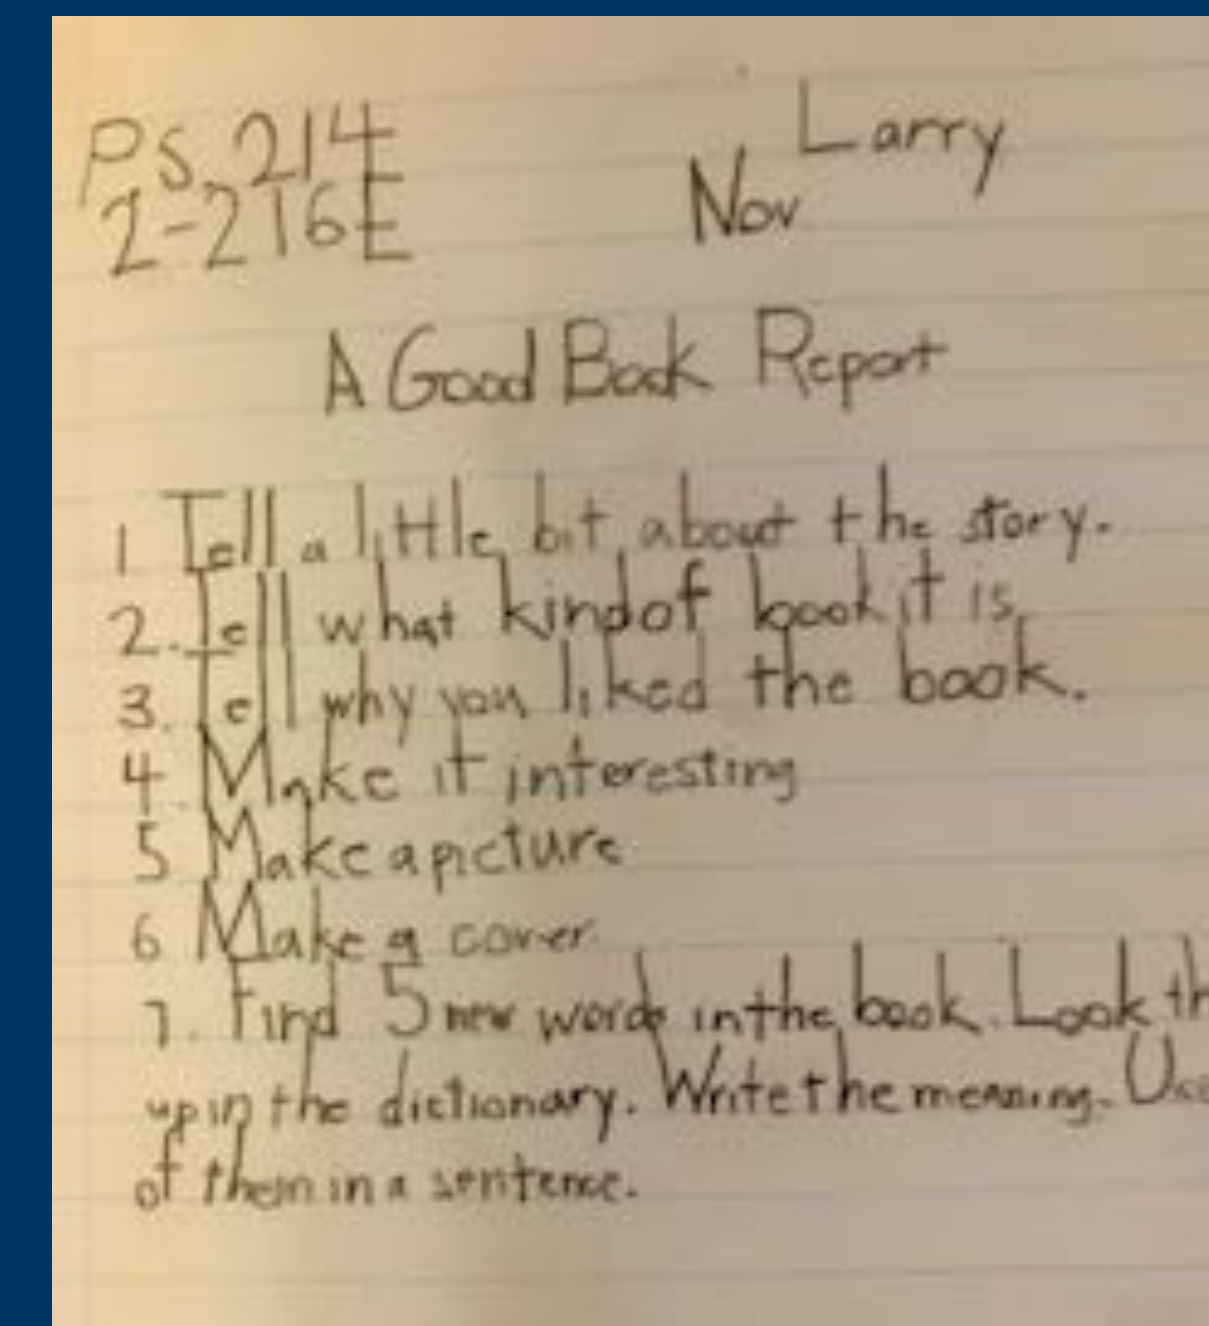 PS. 214 Larry
2-216E Nov
A Good Book Report
1 Tell a little bit about the story.
2. Tell what kind of book it is.
3. Tell why you liked the book.
4. Make it interesting
5 Make a picture
6 Make a cover
7. Find 5 new words in the book. Look th
up in the dictionary. Write the meaning. Use
of them in a sentence.